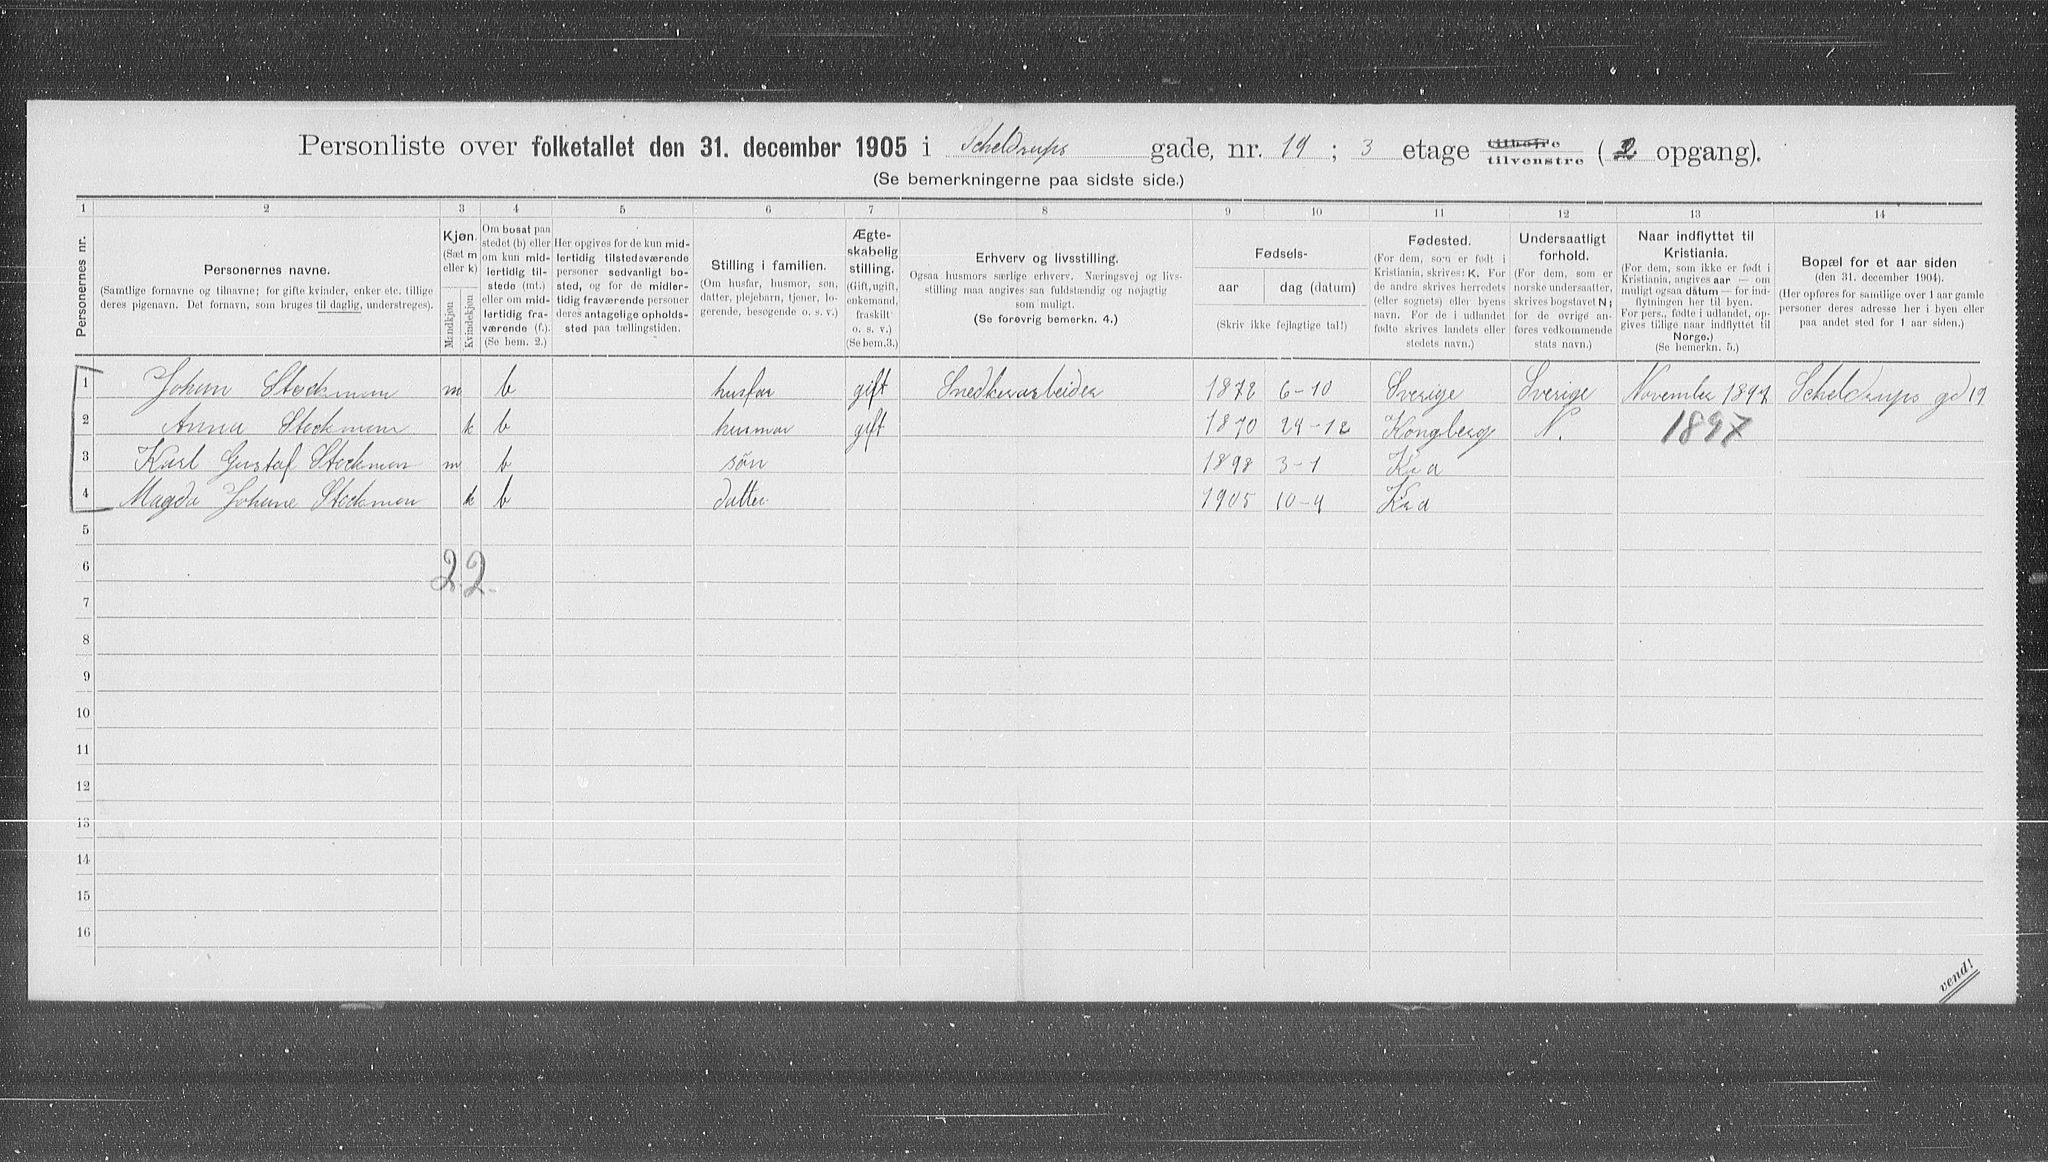 Personliste over folketallet den 31. december 1905 i Scheldrups gade, nr. 19 ; 3 etage tilhøire tilvenstre ( 2 opgang).
(Se bemerkningerne paa sidste side.)
1 2 3 4 5 6 7 8 9 10 11 12 13 14
Personernes nr.
Personernes navne.
(Samtlige fornavne og tilnavne; for gifte kvinder, enker etc. tillige
deres pigenavn. Det fornavn, som bruges til daglig, understreges).
Kjøn.
(Sæt m
eller k)
Mandkjøn
Kvindekjøn
Om bosat paa
stedet (b) eller
om kun mid-
lertidig til-
stede (mt.)
eller om mid-
lertidig fra-
værende (f.).
(Se bem. 2.)
Her opgives for de kun mid-
lertidig tilstedeværende
personer sedvanligt bo-
sted, og for de midler-
tidig fraværende personer
deres antagelige opholds-
sted paa tællingstiden.
Stilling i familien.
(Om husfar, husmor, søn,
datter, plejebarn, tjener, lo-
gerende, besøgende o. s. v.)
Ægte-
skabelig
stilling.
(Gift, ugift,
enkemand,
fraskilt
o. s. v.)
(Se bem. 3.)
Erhverv og livsstilling.
Ogsaa husmors særlige erhverv. Næringsvej og livs-
stilling maa angives saa fuldstændig og nøjagtig
som muligt.
(Se forøvrig bemerkn. 4.)
Fødsels-
aar
dag (datum)
(Skriv ikke fejlagtige tal!)
Fødested.
(For dem, som er født i
Kristiania, skrives: K. For
de andre skrives herredets
(eller sognets) eller byens
navn. For de i udlandet
fødte skrives landets eller
stedets navn.)
Undersaatligt
forhold.
(For dem, som er
norske undersaatter,
skrives bogstavet N;
for de øvrige an-
føres vedkommende
stats navn.)
Naar indflyttet til
Kristiania.
(For dem, som ikke er født i
Kristiania, angives aar — om
muligt ogsaa datum — for ind-
flytningen her til byen.
For pers., fødte i udlandet, op-
gives tillige naar indflyttet til
Norge.)
(Se bemerkn. 5.)
Bopæl for et aar siden
(den 31. december 1904).
(Her opføres for samtlige over 1 aar gamle
personer deres adresse her i byen eller
paa andet sted for 1 aar siden.)
1 Johan Stockman m b husfar gift Snedkerarbeider 1872 6-10 Sverige Sverige November 1897 Scheldrups gd 19
2 Anna Stockman k b husmor gift 1870 29-12 Kongberg N. 1897
3 Karl Gustaf Stockman m b søn 1898 3-1 Kra
4 Magda Johane Stockman k b datter 1905 10-9 Kra
5
6 2 2.
7
8
9
10
11
12
13
14
15
16
vend!